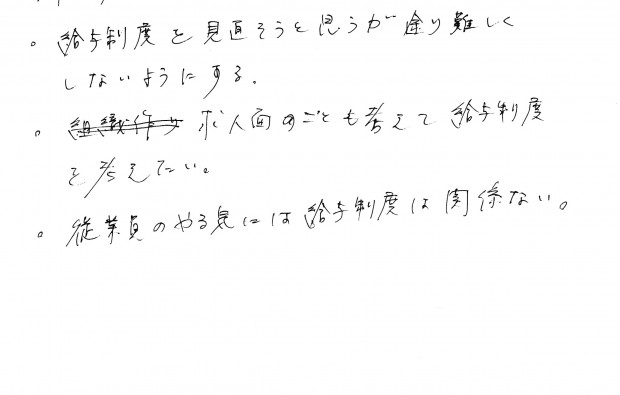 。給与制度を見直そうと思うが余り難しく
しないようにする。
。組織作り 求人面のことも考えて給与制度
を考えたい。
。従業員のやる気には給与制度は関係ない。